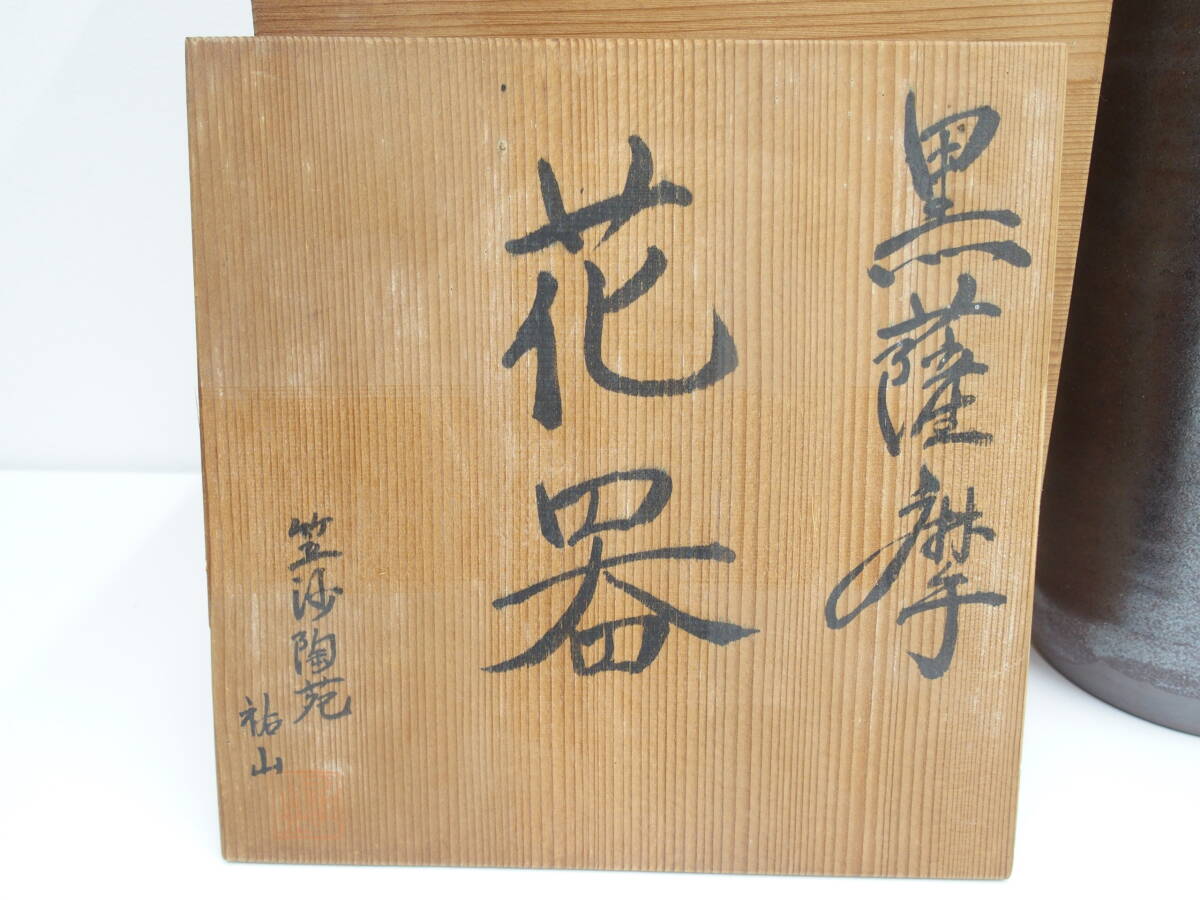 黒薩摩
花器
笠沙陶苑
祐山